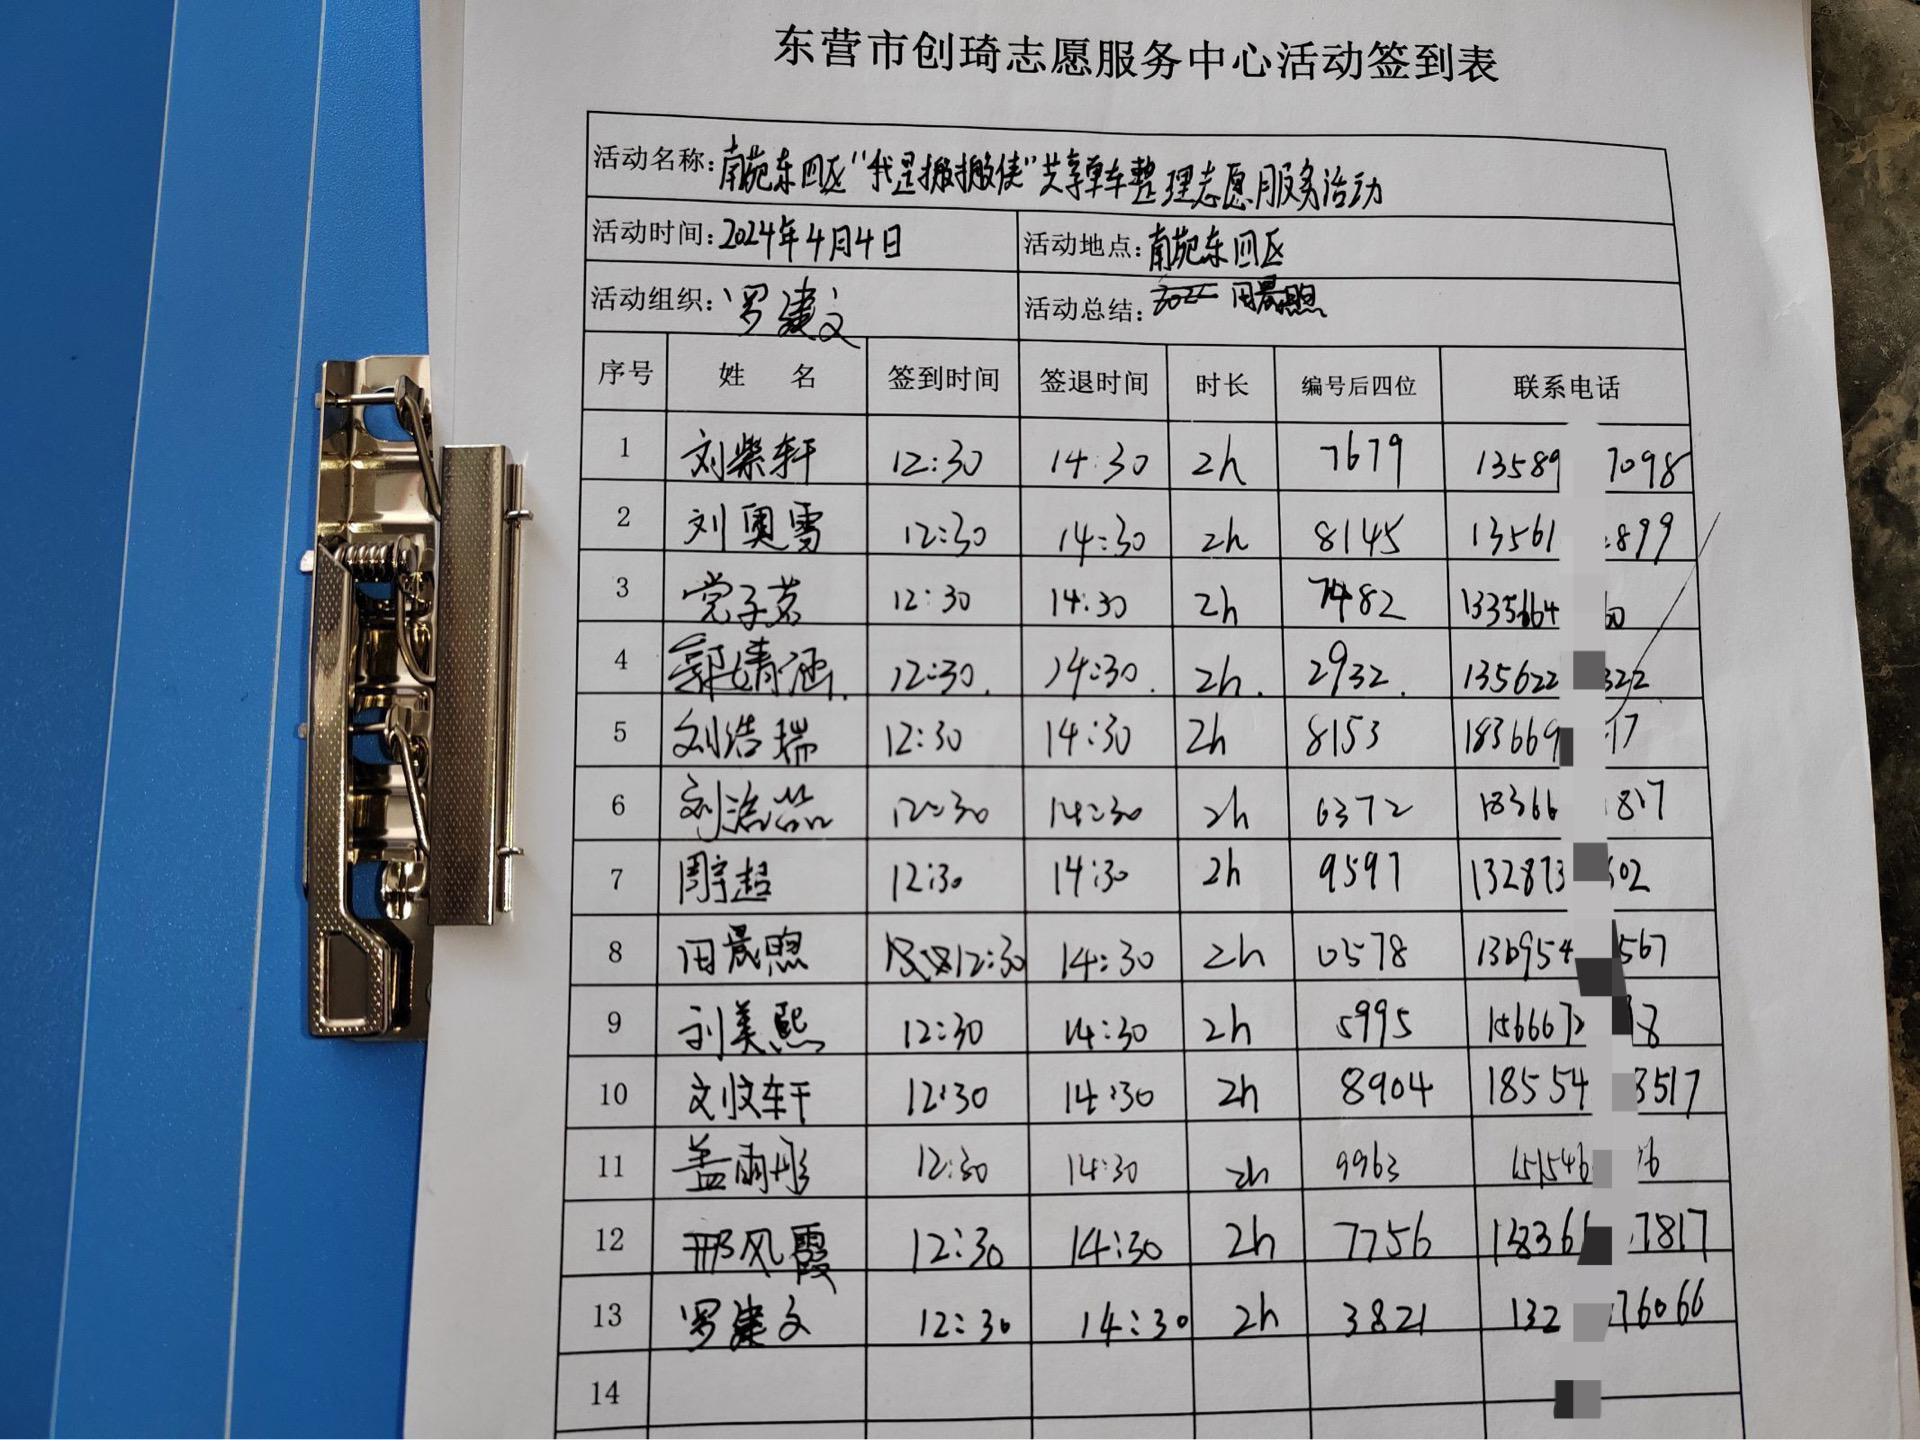 东营市创琦志愿服务中心活动签到表
活动名称：南苑东四区“我是搬搬侠”共享单车整理志愿服务活动
活动时间：2024年4月4日 活动地点：南苑东四区
活动组织：罗建文 活动总结：田晟煦
序号 姓 名 签到时间 签退时间 时长 编号后四位 联系电话
1 刘紫轩 12:30 14:30 2h 7679 13589 7098
2 刘奥雪 12:30 14:30 2h 8145 13561 899
3 党子茗 12:30 14:30 2h 7482 1335664 60
4 郭婧涵. 12:30. 14:30. 2h. 2932. 135622 322
5 刘浩瑞 12:30 14:30 2h 8153 183669 17
6 刘 12:30 14:30 2h 6372 18366 817
7 周宇超 12:30 14:30 2h 9597 132873 602
8 田晟煦 12:30 14:30 2h 0578 136954 567
9 刘美熙 12:30 14:30 2h 5995 156667 8
10 12:30 14:30 2h 8904 18554 3517
11 盖雨彤 12:30 14:30 2h 9963 151546 6
12 邢风霞 12:30 14:30 2h 7756 18366 7817
13 罗建文 12:30 14:30 2h 3821 132 76066
14